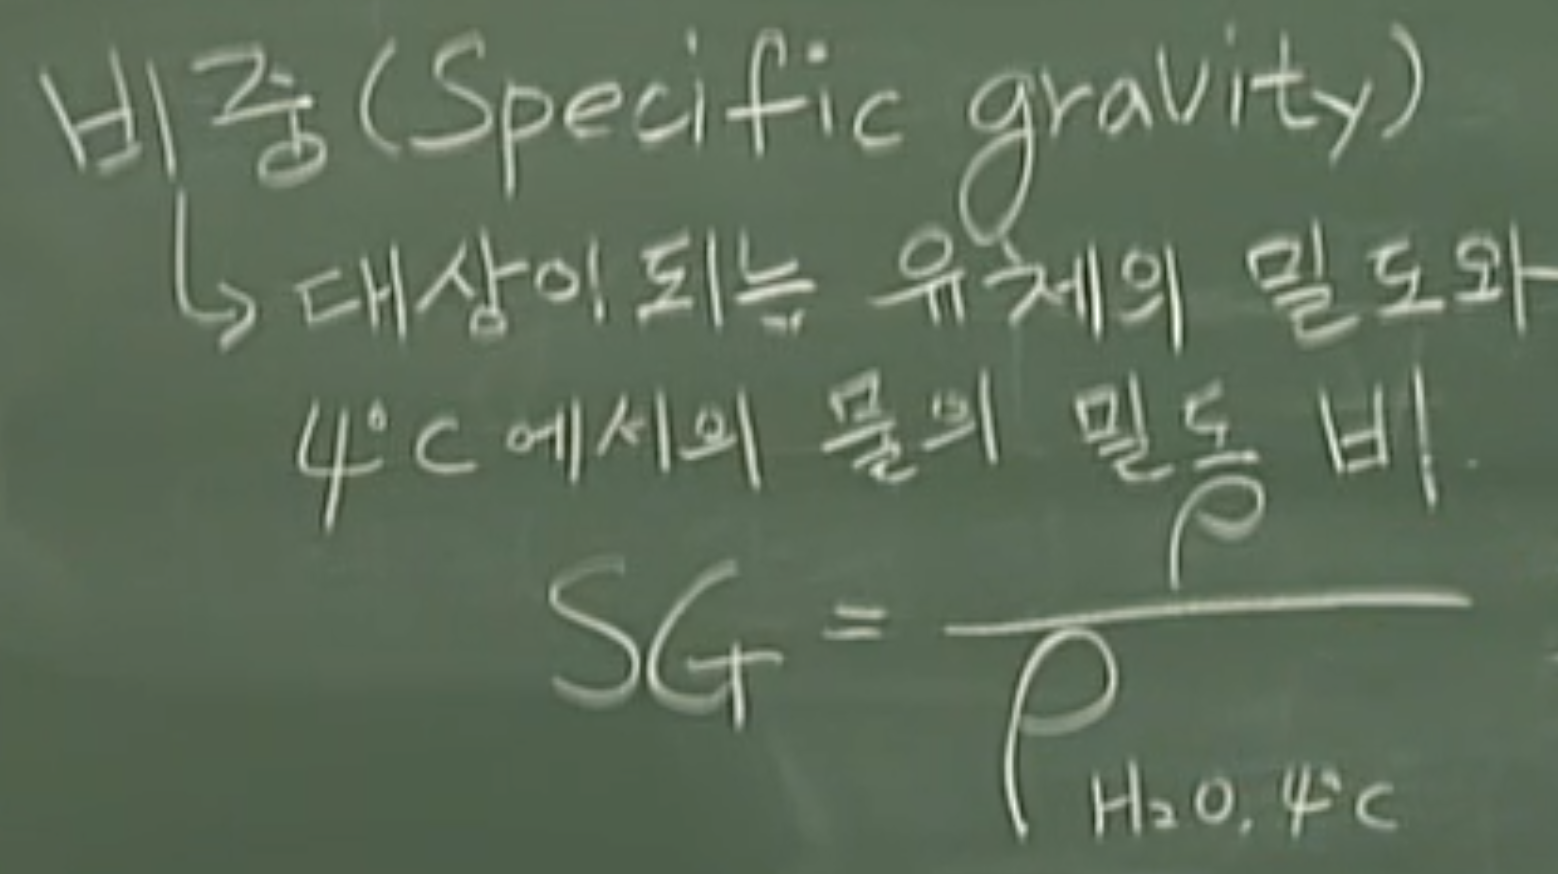 비중(Specific gravity)
↳ 대상이 되는 유체의 밀도와
4°C에서의 물의 밀도 비.
SG = ρ / ρ H₂O, 4°C